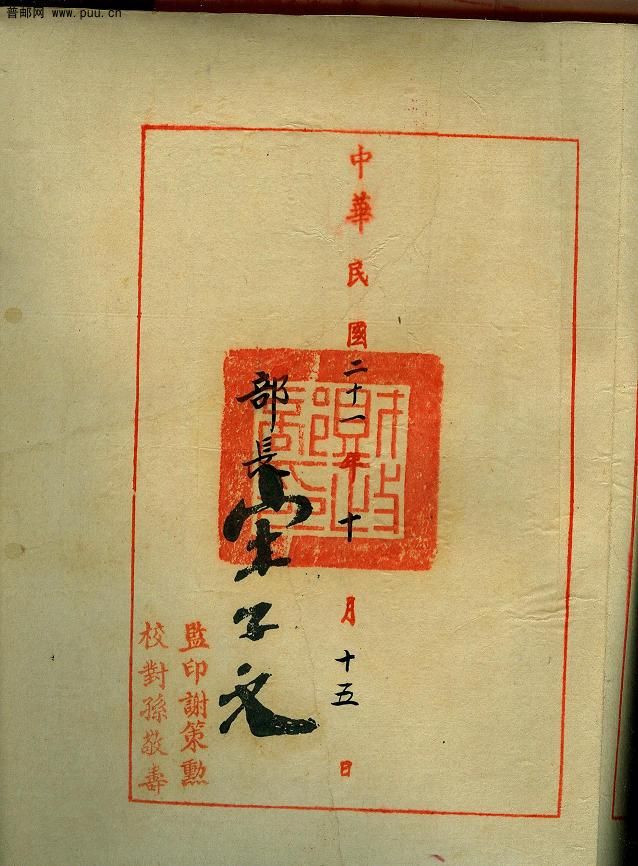 普邮网 www.puu.cn
中華民國二十一年十月十五日
財政部印
部長宋子文
監印謝策勳
校對孫敬壽